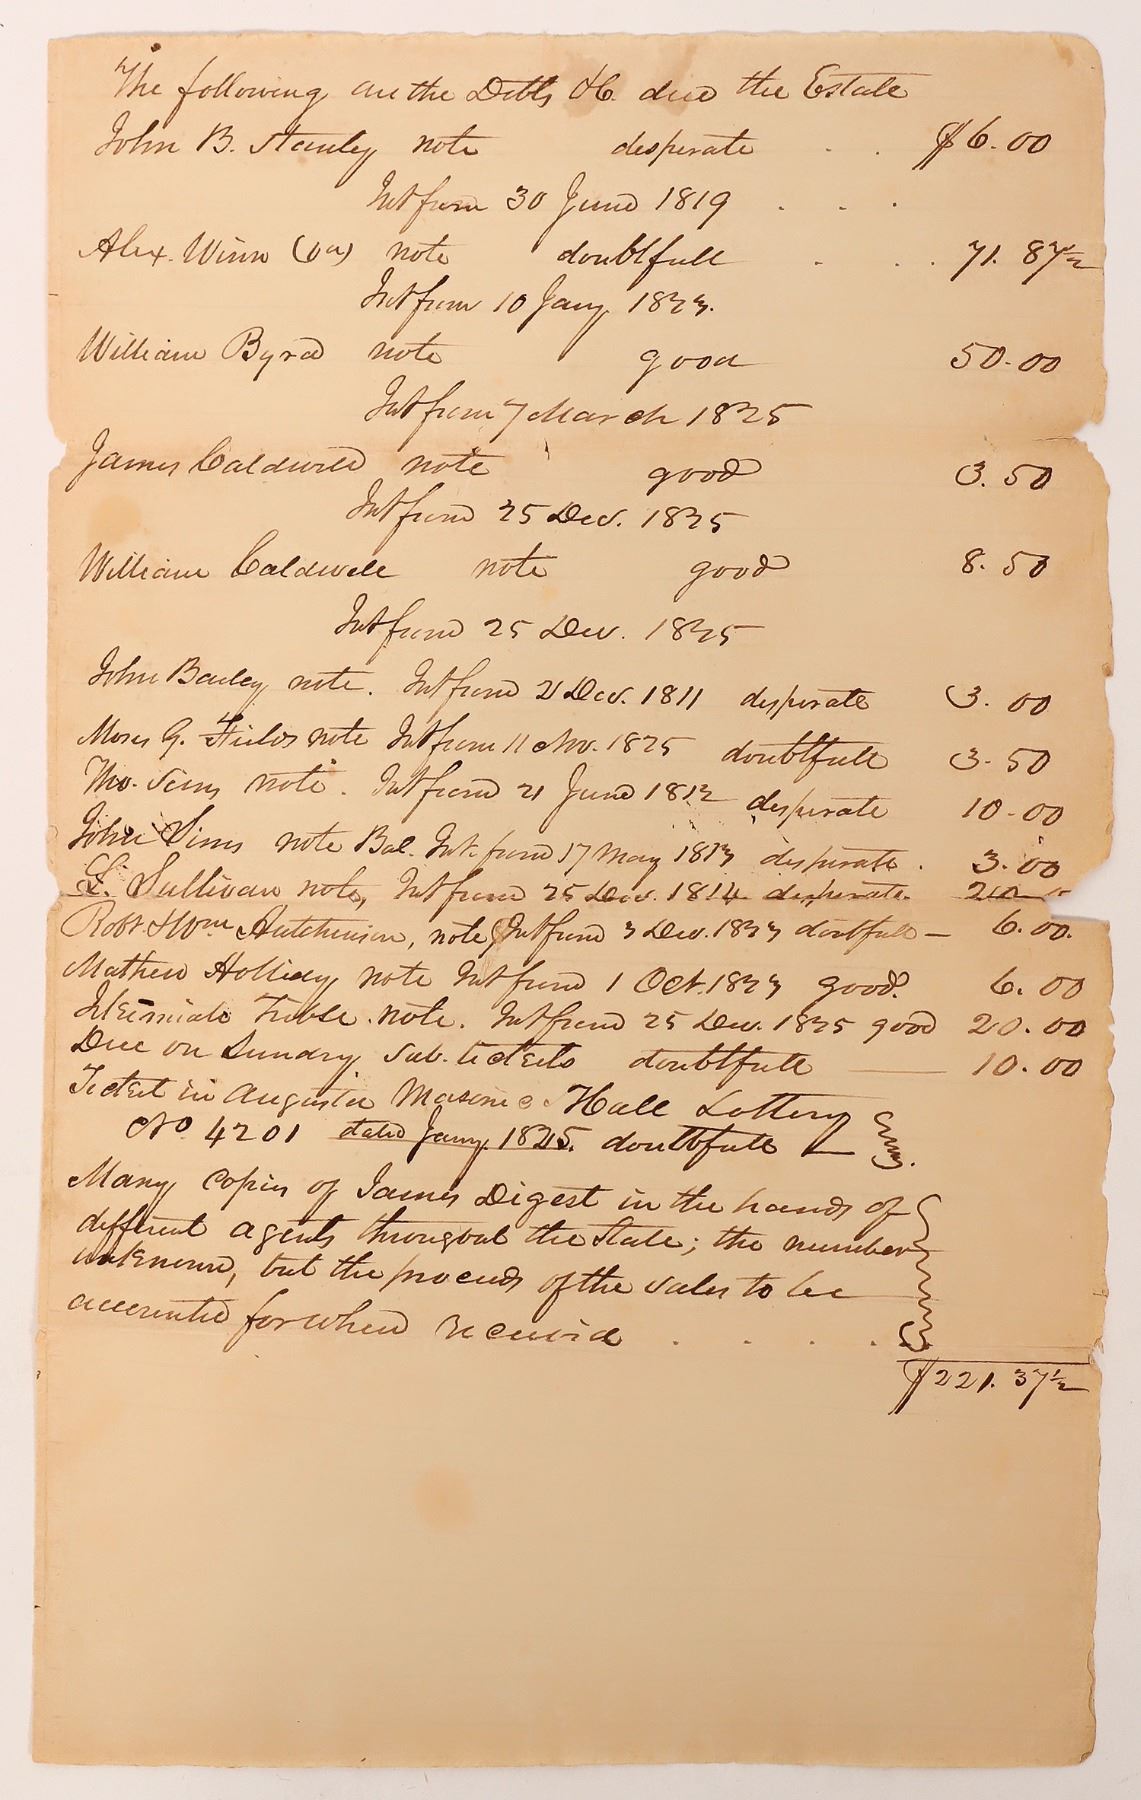 The following are the Debts &C. due the Estate
John B. Stanley note desperate . . $6.00
Int from 30 June 1819 . . .
Alex. Winn (Va) note doubtfull . . . 71. 87½
Int from 10 Jany 1823.
William Byrd note good 50.00
Int from 7 March 1825
James Caldwell note good 3.50
Int from 25 Dec. 1825
William Caldwell note good 8.50
Int from 25 Dec. 1825
John Bailey note. Int from 21 Dec. 1811 desperate 3.00
Moses G. Fields note Int from 11 Nov. 1825 doubtfull 3.50
Tho. Sims note. Int from 21 June 1812 desperate 10.00
John Sims note Bal. Int. from 17 May 1813 desperate . 3.00
L. Sullivan note, Int from 25 Dec. 1814 desperate. 20
Robt & Wm Hutchinson, note Int from 3 Dec. 1823 doutfull — 6.00.
Mathew Holliday note Int from 1 Oct. 1823 good. 6.00
Trible note. Int from 25 Dec. 1825 good 20.00
Due on Sundry Sub. tickets doubtfull — 10.00
Ticket in Augusta Masonic Hall Lottery
No 4201 dated Jany. 1825. doubtfull
Many copies of James Digest in the hands of
different agents throughout the State; the number
unknown, but the proceeds of the sales to be
accounted for when received . . . .
$221. 37½